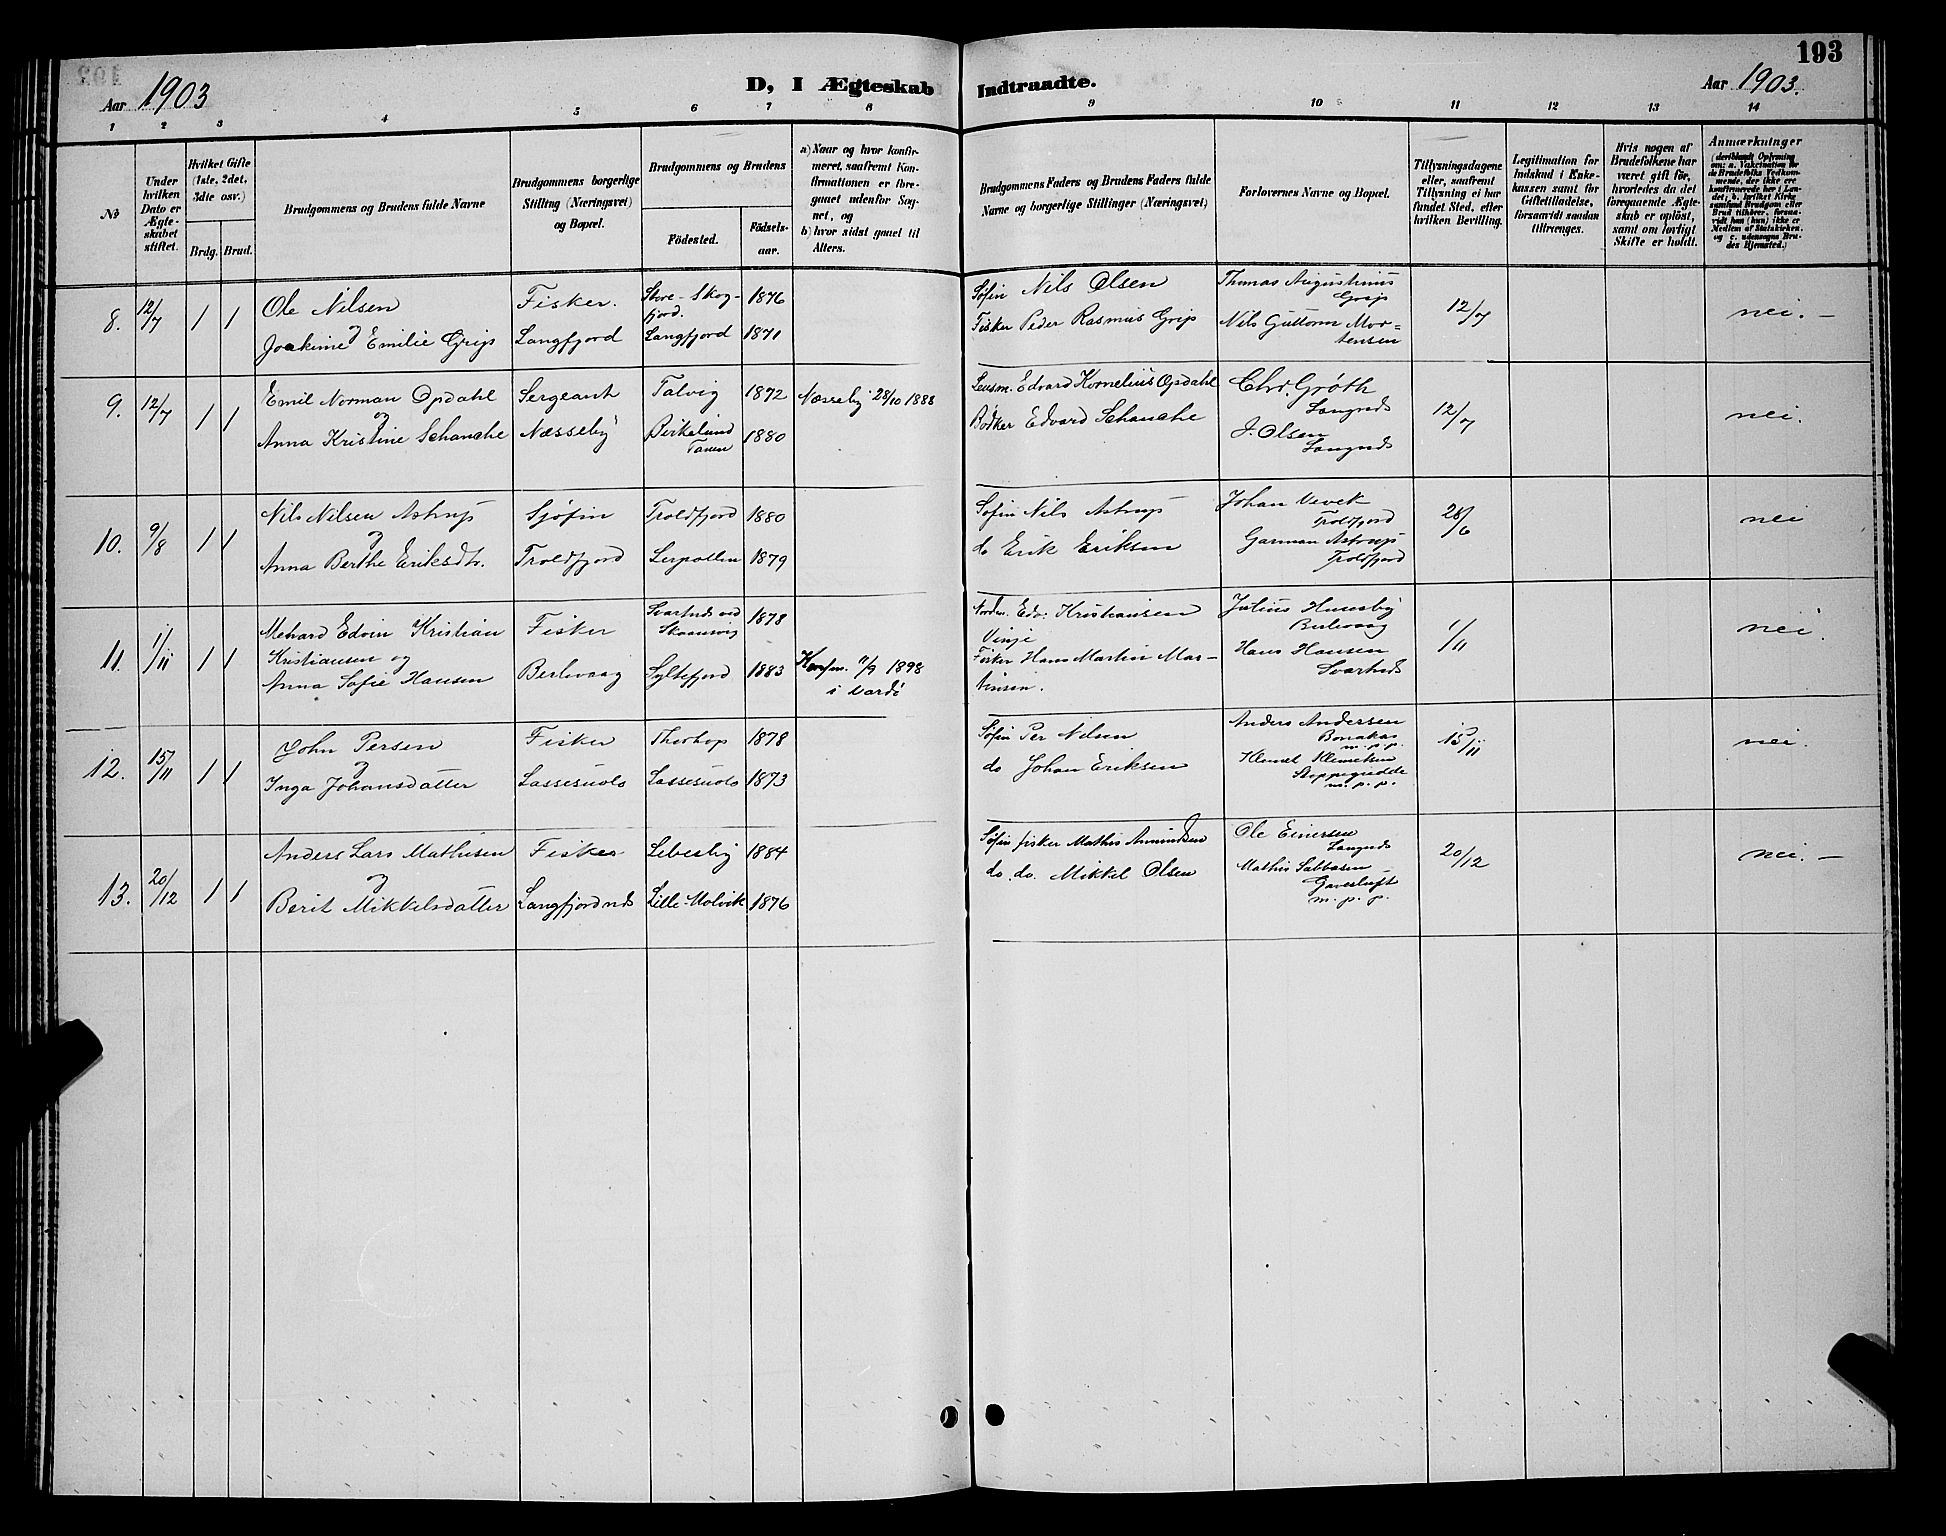 193
Aar 1903
D, I Ægteskab Indtraadte.
Aar 1903.
1 2 3 4 5 6 7 8 9 10 11 12 13 14
№
Under hvilken Dato er Ægteskabet stiftet.
Hvilket Gifte (1ste, 2det, 3die osv.)
Brdg. Brud.
Brudgommens og Brudens fulde Navne
Brudgommens borgerlige Stilling (Næringsvei) og Bopæl.
Brudgommens og Brudens
Födested.
Födsels-aar.
a) Naar og hvor konfirmeret, saafremt Konfirmationen er foregaaet udenfor Sognet, og
b) hvor sidst gaaet til Alters.
Brudgommens Faders og Brudens Faders fulde Navne og borgerlige Stillinger (Næringsvei)
Forlovernes Navne og Bopæl.
Tillysningsdagene eller, saafremt Tillysning ei har fundet Sted, efter hvilken Bevilling.
Legitimation for Indskud i Enkekassen samt for Giftetilladelse, forsaavidt saadan tiltrænges.
Hvis nogen af Brudefolkene har været gift för, hvorledes da det foregaaende Ægteskab er oplöst, samt om lovligt Skifte er holdt.
Anmærkninger
(deriblandt Oplysning om: a. Vaksination af de Brudefolks Vedkommende, der ikke ere konfirmerede her i Landet; b. hvilket Kirkesamfund Brudgom eller Brud tilhörer, forsaavidt han (hun) ikke er Medlem af Statskirken, og c. udensogns Brudes Hjemsted.)
8. 12/7 1 1 Ole Nilsen Fisker. Store-Skogfjord. 1876 Søfin Nils Olsen Thomas Augustinus Grip 12/7 nei. –
og
Joakime Emilie Grip Langfjord Langfjord 1871 Fisker Peder Rasmus Grip Nils Guttorm Mortensen
9. 12/7 1 1 Emil Norman Opdahl Sergeant Talvig 1872 Næsseby 28/10 1888 Lensm. Edvard Kornelius Opdahl Chr. Grøth Langnes 12/7 nei.
og
Anna Kristine Schanche Næsseby Birkelund Tanen 1880 Bødker Edvard Schanche J. Olsen Langnes
10. 9/8 1 1 Nils Nilsen Astrup Sjøfin Troldfjord 1880 Søfin Nils Astrup Johan Vevek Troldfjord 28/6 nei
og
Anna Berthe Eriksdtr. Troldfjord Lerpollen 1879 do Erik Eriksen Garman Astrup Troldfjord
11. 1/11 1 1 Mehard Edvin Kristian Fisker Svartnes ved Skaansvig 1878 Nordm. Edv. Kristiansen Vinje Julius Huseby Berlevaag 1/11 nei.
Kristiansen og
Anna Sofie Hansen Berlevaag Syltefjord 1883 Konfm. 11/9 1898 i Vardø Fisker Hans Martin Martinsen. Hans Hansen Svartnes
12. 15/11 1 1 John Persen Fisker Thorhop 1878 Søfin Per Nilsen Anders Andersen Bonakas m. p. p. 15/11 nei.
og
Inga Johansdatter Lassesuolo Lassesuolo 1873 do Johan Eriksen Klemet Klemetsen Stoppogiedde m. p. p.
13. 20/12 1 1 Anders Lars Mathisen Fisker Lebesby 1884 Søfin fisker Mathis Amundsen Ole Einersen Langnes 20/12 nei. –
og
Berit Mikkelsdatter Langfjordnes Lille-Molvik 1876 do. do. Mikkel Olsen Mathis Sabbasen Gavesluft m. p. p.